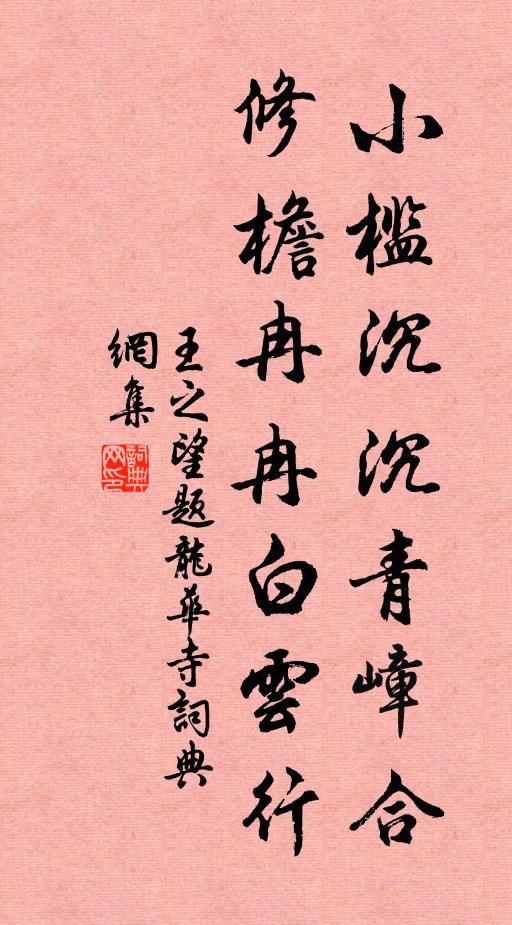 小檻沉沉青嶂合
修檐冉冉白雲行
王之望題龍華寺詞典
網集
詞典
网印